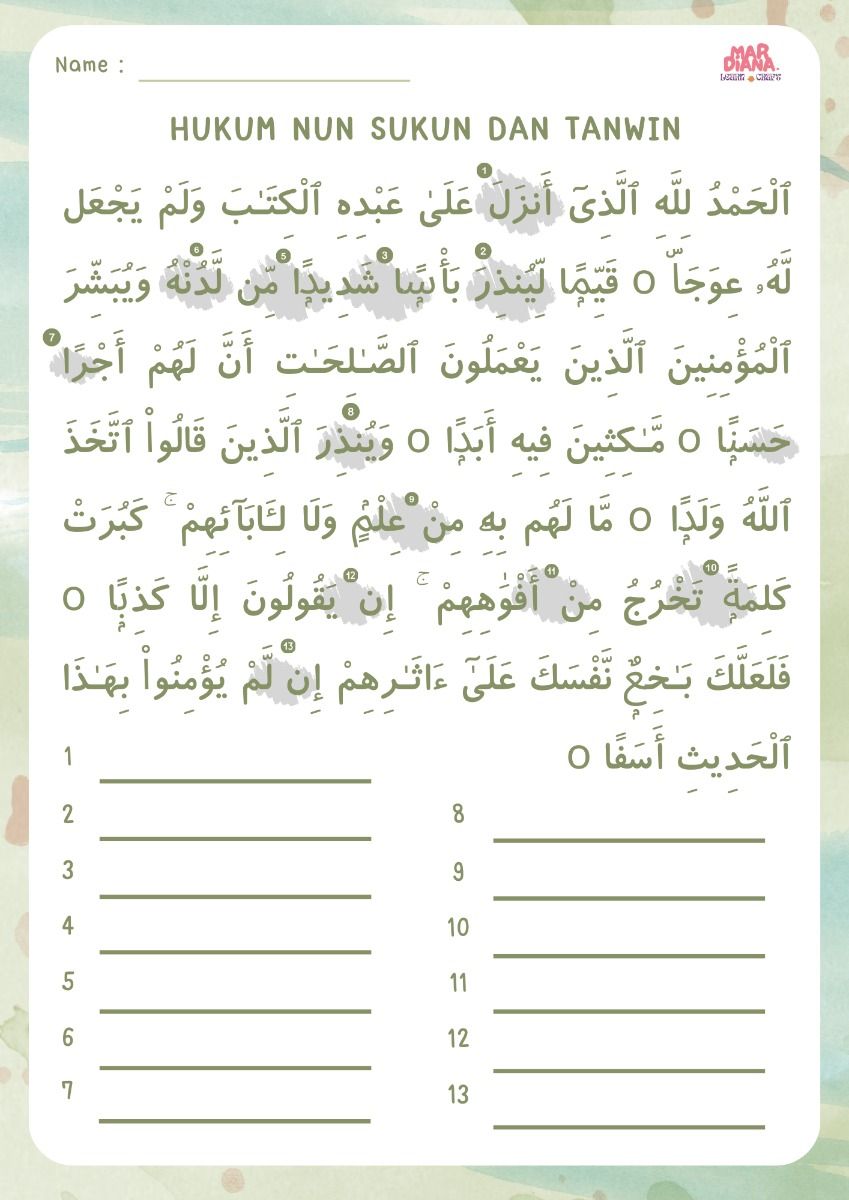 Name :
MAR DIANA
HUKUM NUN SUKUN DAN TANWIN
ٱلْحَمْدُ لِلَّهِ ٱلَّذِىٓ أَنزَلَ 1 عَلَىٰ عَبْدِهِ ٱلْكِتَـٰبَ وَلَمْ يَجْعَل
لَّهُۥ عِوَجَاۜ O قَيِّمًۭا لِّيُنذِرَ 2 بَأْسًۭا 3 شَدِيدًۭا 5 مِّن لَّدُنْهُ 6 وَيُبَشِّرَ
ٱلْمُؤْمِنِينَ ٱلَّذِينَ يَعْمَلُونَ ٱلصَّـٰلِحَـٰتِ أَنَّ لَهُمْ أَجْرًۭا 7
حَسَنًۭا O مَّـٰكِثِينَ فِيهِ أَبَدًۭا O وَيُنذِرَ 8 ٱلَّذِينَ قَالُوا۟ ٱتَّخَذَ
ٱللَّهُ وَلَدًۭا O مَّا لَهُم بِهِۦ مِنْ 9 عِلْمٍۢ وَلَا لِـَٔابَآئِهِمْ ۚ كَبُرَتْ
كَلِمَةًۭ 10 تَخْرُجُ مِنْ 11 أَفْوَٰهِهِمْ ۚ إِن 12 يَقُولُونَ إِلَّا كَذِبًۭا O
فَلَعَلَّكَ بَـٰخِعٌۭ نَّفْسَكَ عَلَىٰٓ ءَاثَـٰرِهِمْ إِن 13 لَّمْ يُؤْمِنُوا۟ بِهَـٰذَا
ٱلْحَدِيثِ أَسَفًا O
1
2
3
4
5
6
7
8
9
10
11
12
13